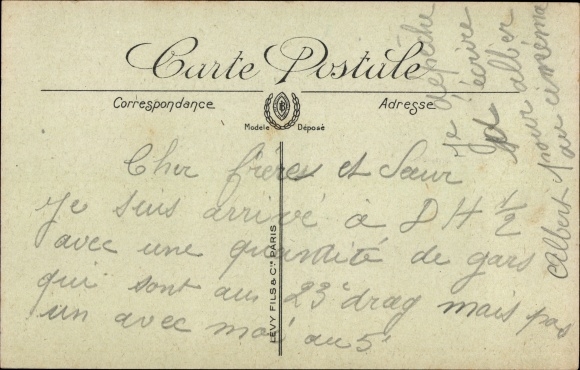 Carte Postale
Correspondance
Adresse
Modèle Déposé
LEVY FILS & Cie PARIS
Cher frère et Sœur
Je suis arrivé à 5 H 1/2
avec une quantité de gars
qui sont au 23e drag mais pas
un avec moi au 5e
Je dépêche
d'écrire
pour aller
au cinéma
Albert